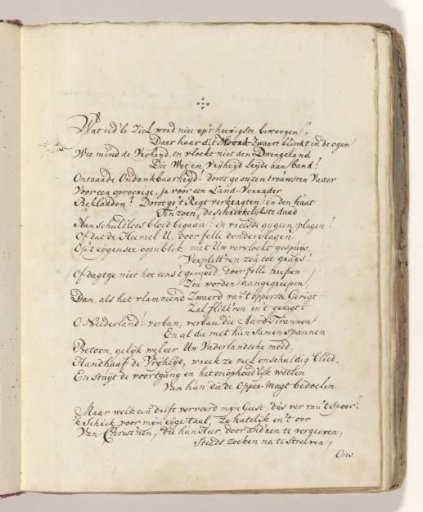 Wat eed'le Ziel word niet op't heevigste bewoogen?
Daar haar dit Moord Zwaart blinkt in de ogen
Wie mind de Vryheyd, en vloekt niet den Dwingeland
Die Wet en Vryheyd Leyde aan band?
Ontaarde Ondankbaarheyd! dorst ge onzen trouwsten Vader
Voor een oproerige, ja voor een Land-Verrader
Bekladden? Dorst ge 't Regt verkragten en den haat
Ten toon, de schrikkelykste daad
Aan schuldloos bloed begaan! en vreesde gy geen plagen?
Of dat de Heemel U, door felle donderslagen
Op't eygenste ogenblik, met Uw vervloekt gespuys
Verplett'ren zou tot gruys!
Of dagt ge niet hoe eens't gemoed, door felle neepen,
Zou worden aangegreepen,
Dan, als het vlammend Zwaard van't opperste Gerigt
Zal flikk'ren in't gezigt?
O Nederland! verban, verban die Aard-Tirannen
En al die met hun samen spannen
Betoon, gelyk weleer, Uw Vaderlandsche moed
Handhaaf de Vryheyd, wreek zo veel onschuldig bloed,
En stuyt de voortgang en het onophoud'lyk woelen
Van hun die de Opper-magt bedoelen
Maar welk een drift vervoerd myn Geest, dus ver van't Spoor?
'k Schrik voor myn eyge taal, zo hatelyk in't oor
Van Christ'nen, die hun Heer, door and'ren te vergeeven,
Steeds zoeken na te Streeven,
Ons